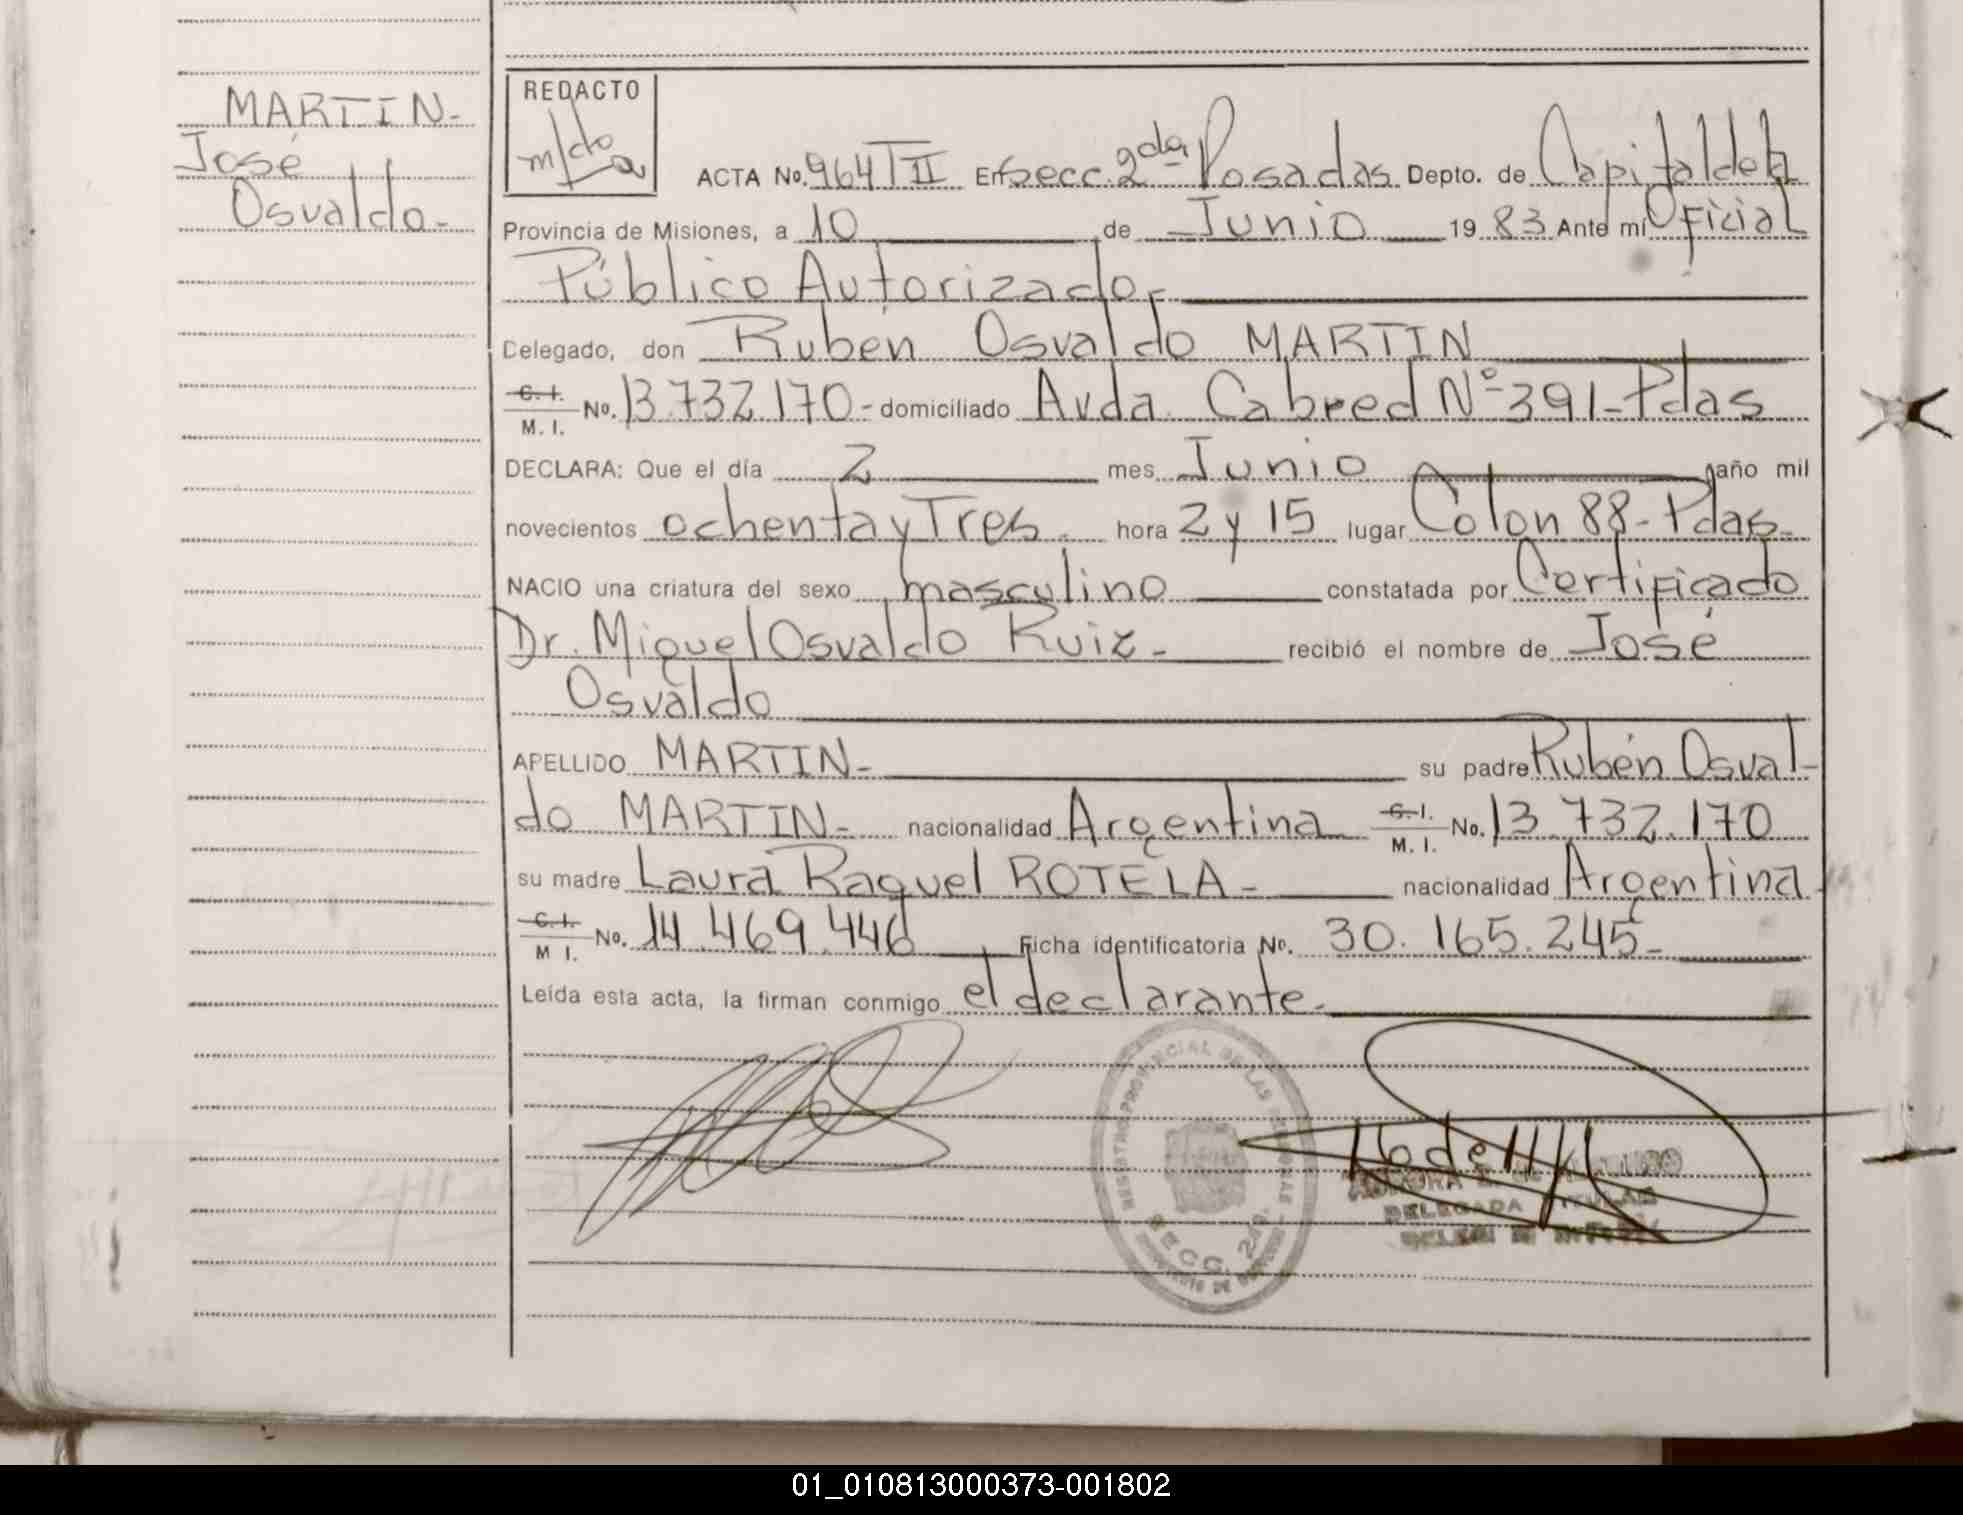 MARTIN-
José
Osvaldo-
REDACTO
ACTA No. 964 T II En secc. 2da Posadas Depto. de Capital de la
Provincia de Misiones, a 10 de Junio 19 83 Ante mí Oficial
Público Autorizado-
Delegado, don Rubén Osvaldo MARTIN
C. I.
M. I. No. 13.732.170- domiciliado Avda. Cabred Nº 391-Pdas
DECLARA: Que el día 2 mes Junio año mil
novecientos ochenta y Tres. hora 2 y 15 lugar Colon 88-Pdas-
NACIO una criatura del sexo masculino constatada por Certificado
Dr. Miguel Osvaldo Ruiz- recibió el nombre de José
Osvaldo
APELLIDO MARTIN- su padre Rubén Osval-
do MARTIN- nacionalidad Argentina C. I. M. I. No. 13.732.170
su madre Laura Raquel ROTELA- nacionalidad Argentina
C. I.
M I. No. 14.469.446 Ficha identificatoria No. 30.165.245-
Leída esta acta, la firman conmigo el declarante-
REGISTRO PROVINCIAL DE LAS PERSONAS
SECC. 2da.
DELEGADA TITULAR
01_010813000373-001802